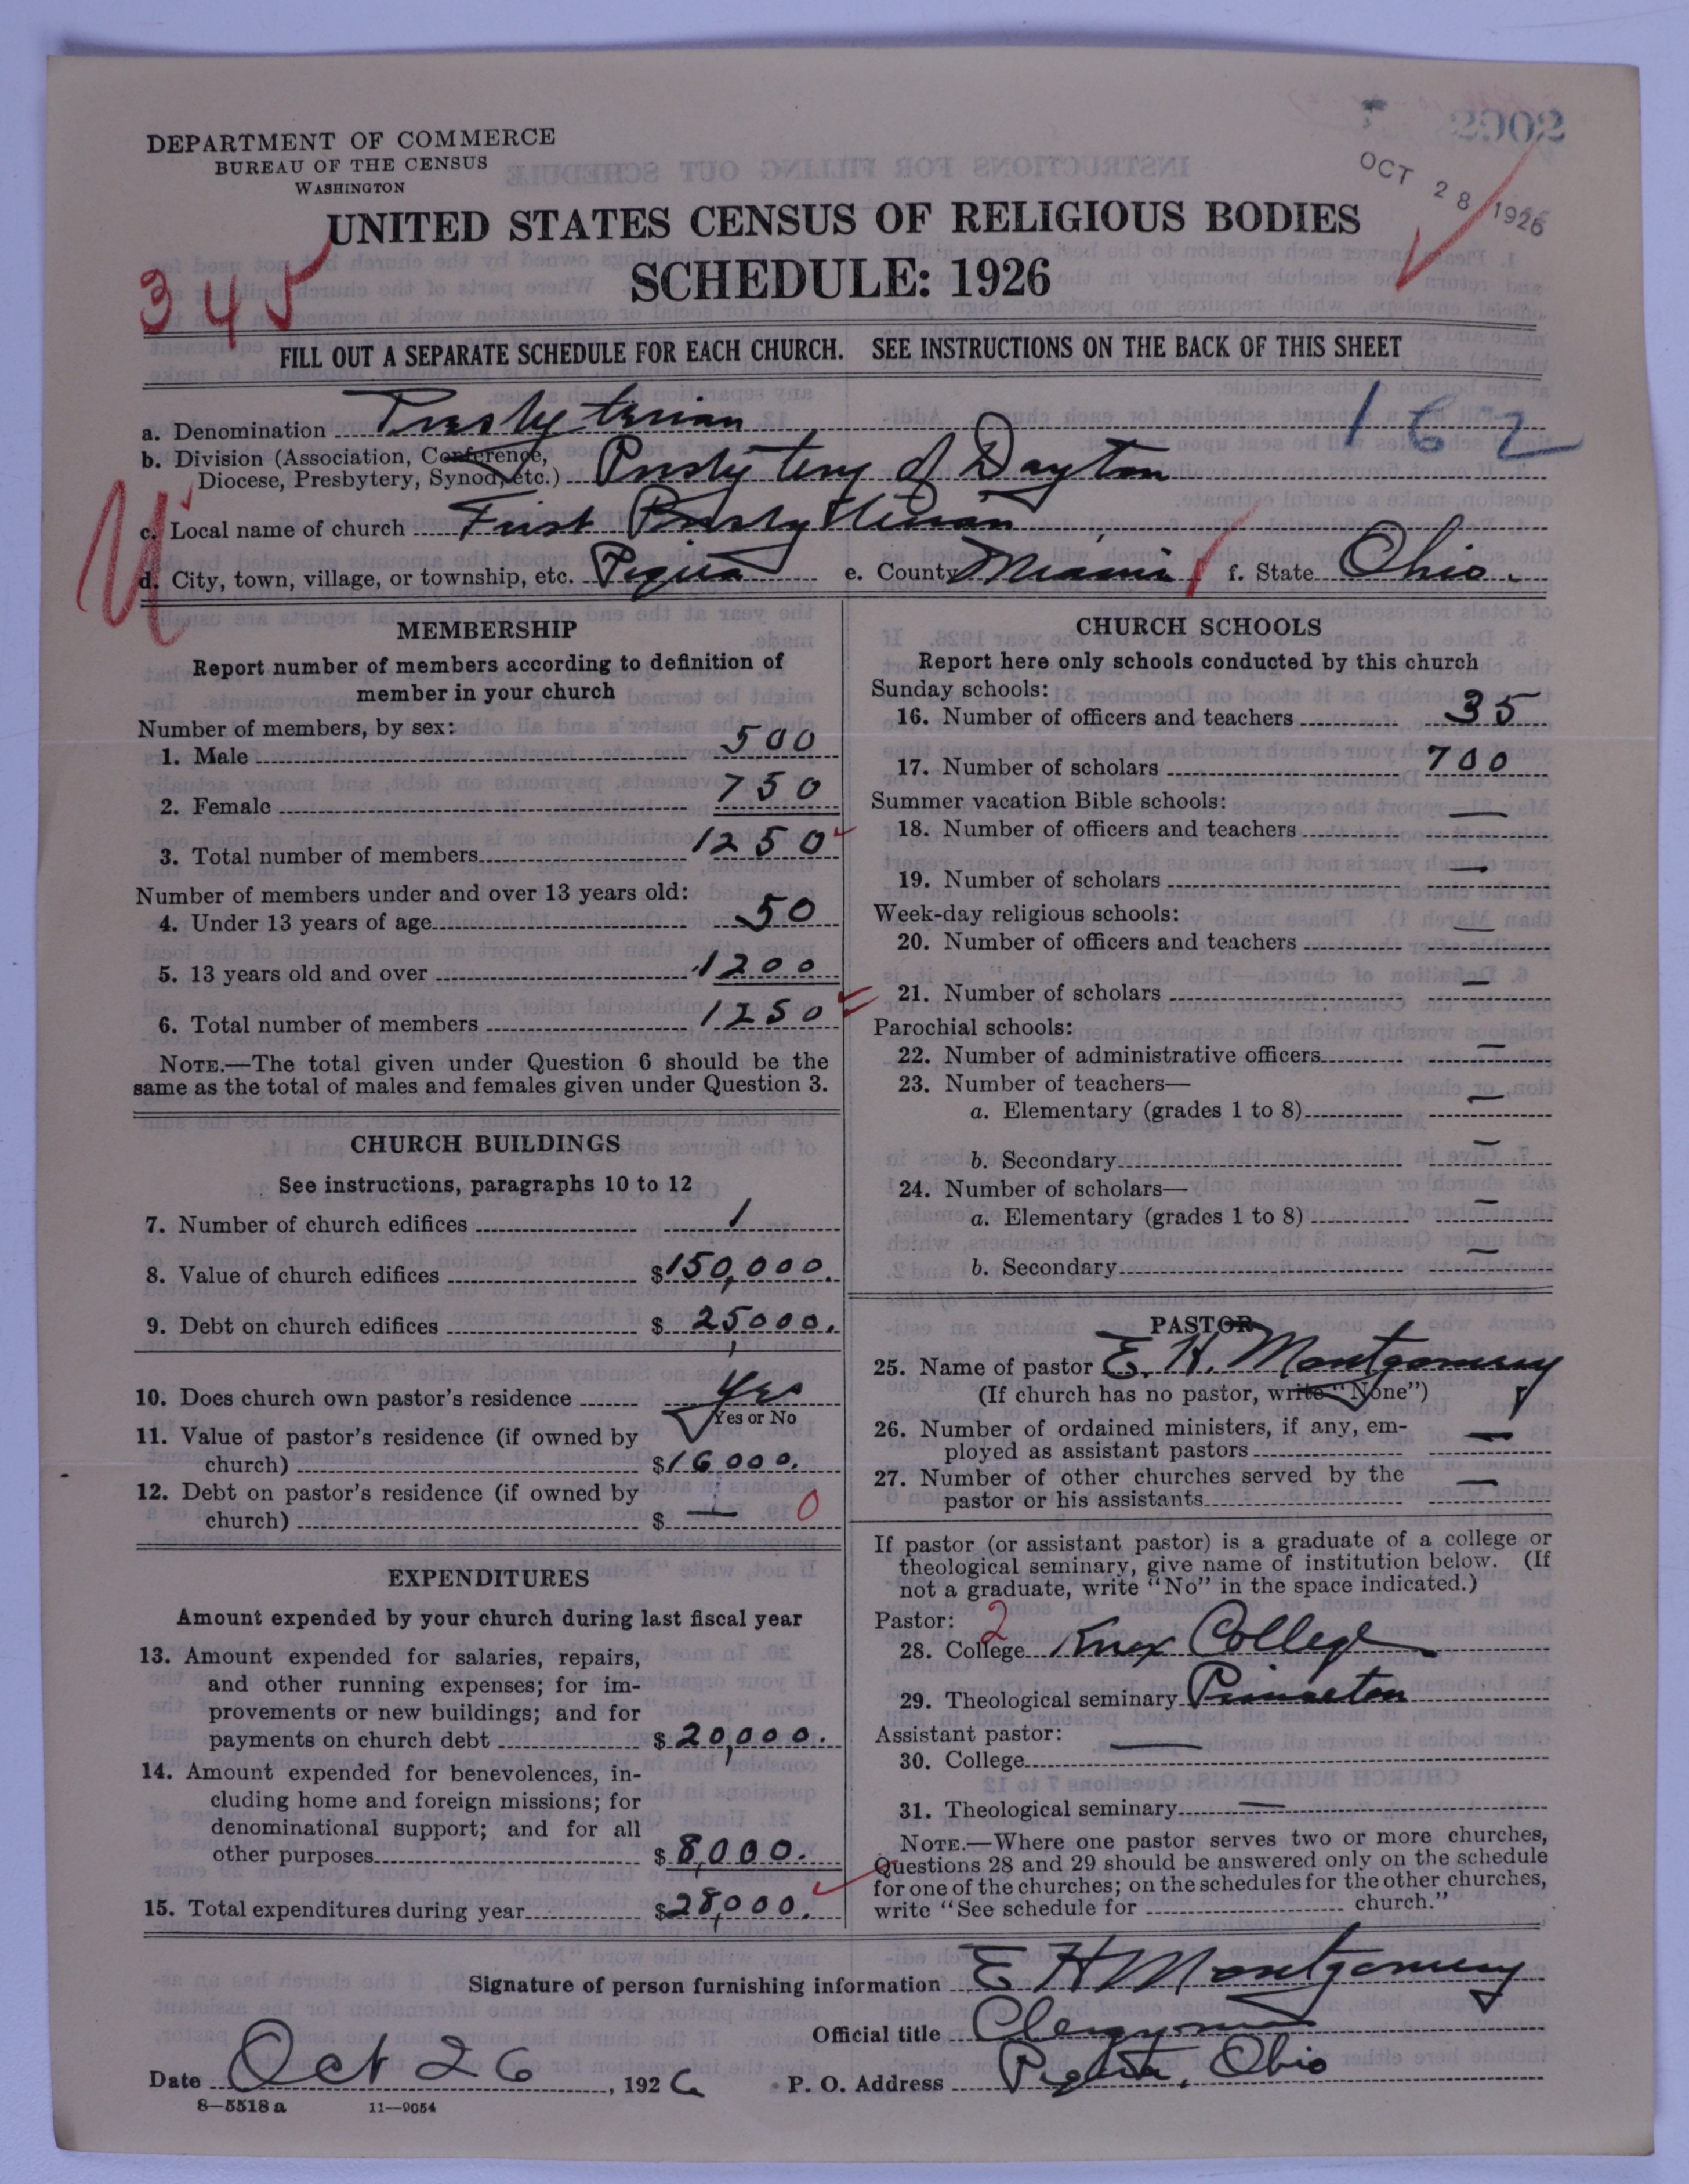 DEPARTMENT OF COMMERCE
BUREAU OF THE CENSUS
WASHINGTON
2902
OCT 28 1926
UNITED STATES CENSUS OF RELIGIOUS BODIES
SCHEDULE: 1926
345
FILL OUT A SEPARATE SCHEDULE FOR EACH CHURCH. SEE INSTRUCTIONS ON THE BACK OF THIS SHEET
a. Denomination Presbyterian 162
b. Division (Association, Conference,
Diocese, Presbytery, Synod, etc.) Presbytery of Dayton
U
c. Local name of church First Presbyterian
d. City, town, village, or township, etc. Piqua e. County Miami f. State Ohio.
MEMBERSHIP
Report number of members according to definition of
member in your church
Number of members, by sex:
1. Male 500
2. Female 750
3. Total number of members 1250
Number of members under and over 13 years old:
4. Under 13 years of age 50
5. 13 years old and over 1200
6. Total number of members 1250
NOTE.—The total given under Question 6 should be the
same as the total of males and females given under Question 3.
CHURCH BUILDINGS
See instructions, paragraphs 10 to 12
7. Number of church edifices 1
8. Value of church edifices $150,000.
9. Debt on church edifices $ 25,000.
10. Does church own pastor's residence Yes
Yes or No
11. Value of pastor's residence (if owned by
church) $16000.
12. Debt on pastor's residence (if owned by
church) $ — 0
EXPENDITURES
Amount expended by your church during last fiscal year
13. Amount expended for salaries, repairs,
and other running expenses; for im-
provements or new buildings; and for
payments on church debt $ 20,000.
14. Amount expended for benevolences, in-
cluding home and foreign missions; for
denominational support; and for all
other purposes $ 8,000.
15. Total expenditures during year $28,000.
CHURCH SCHOOLS
Report here only schools conducted by this church
Sunday schools:
16. Number of officers and teachers 35
17. Number of scholars 700
Summer vacation Bible schools:
18. Number of officers and teachers —
19. Number of scholars —
Week-day religious schools:
20. Number of officers and teachers —
21. Number of scholars —
Parochial schools:
22. Number of administrative officers —
23. Number of teachers—
a. Elementary (grades 1 to 8) —
b. Secondary —
24. Number of scholars—
a. Elementary (grades 1 to 8) —
b. Secondary —
PASTOR
25. Name of pastor E. H. Montgomery
(If church has no pastor, write "None")
26. Number of ordained ministers, if any, em-
ployed as assistant pastors —
27. Number of other churches served by the
pastor or his assistants —
If pastor (or assistant pastor) is a graduate of a college or
theological seminary, give name of institution below. (If
not a graduate, write "No" in the space indicated.)
Pastor: 2
28. College Knox College
29. Theological seminary Princeton
Assistant pastor:
30. College —
31. Theological seminary —
NOTE.—Where one pastor serves two or more churches,
Questions 28 and 29 should be answered only on the schedule
for one of the churches; on the schedules for the other churches,
write "See schedule for church."
Signature of person furnishing information E H Montgomery
Official title Clergyman
Date Oct 26, 1926 P. O. Address Piqua, Ohio
8—5518 a 11—9054